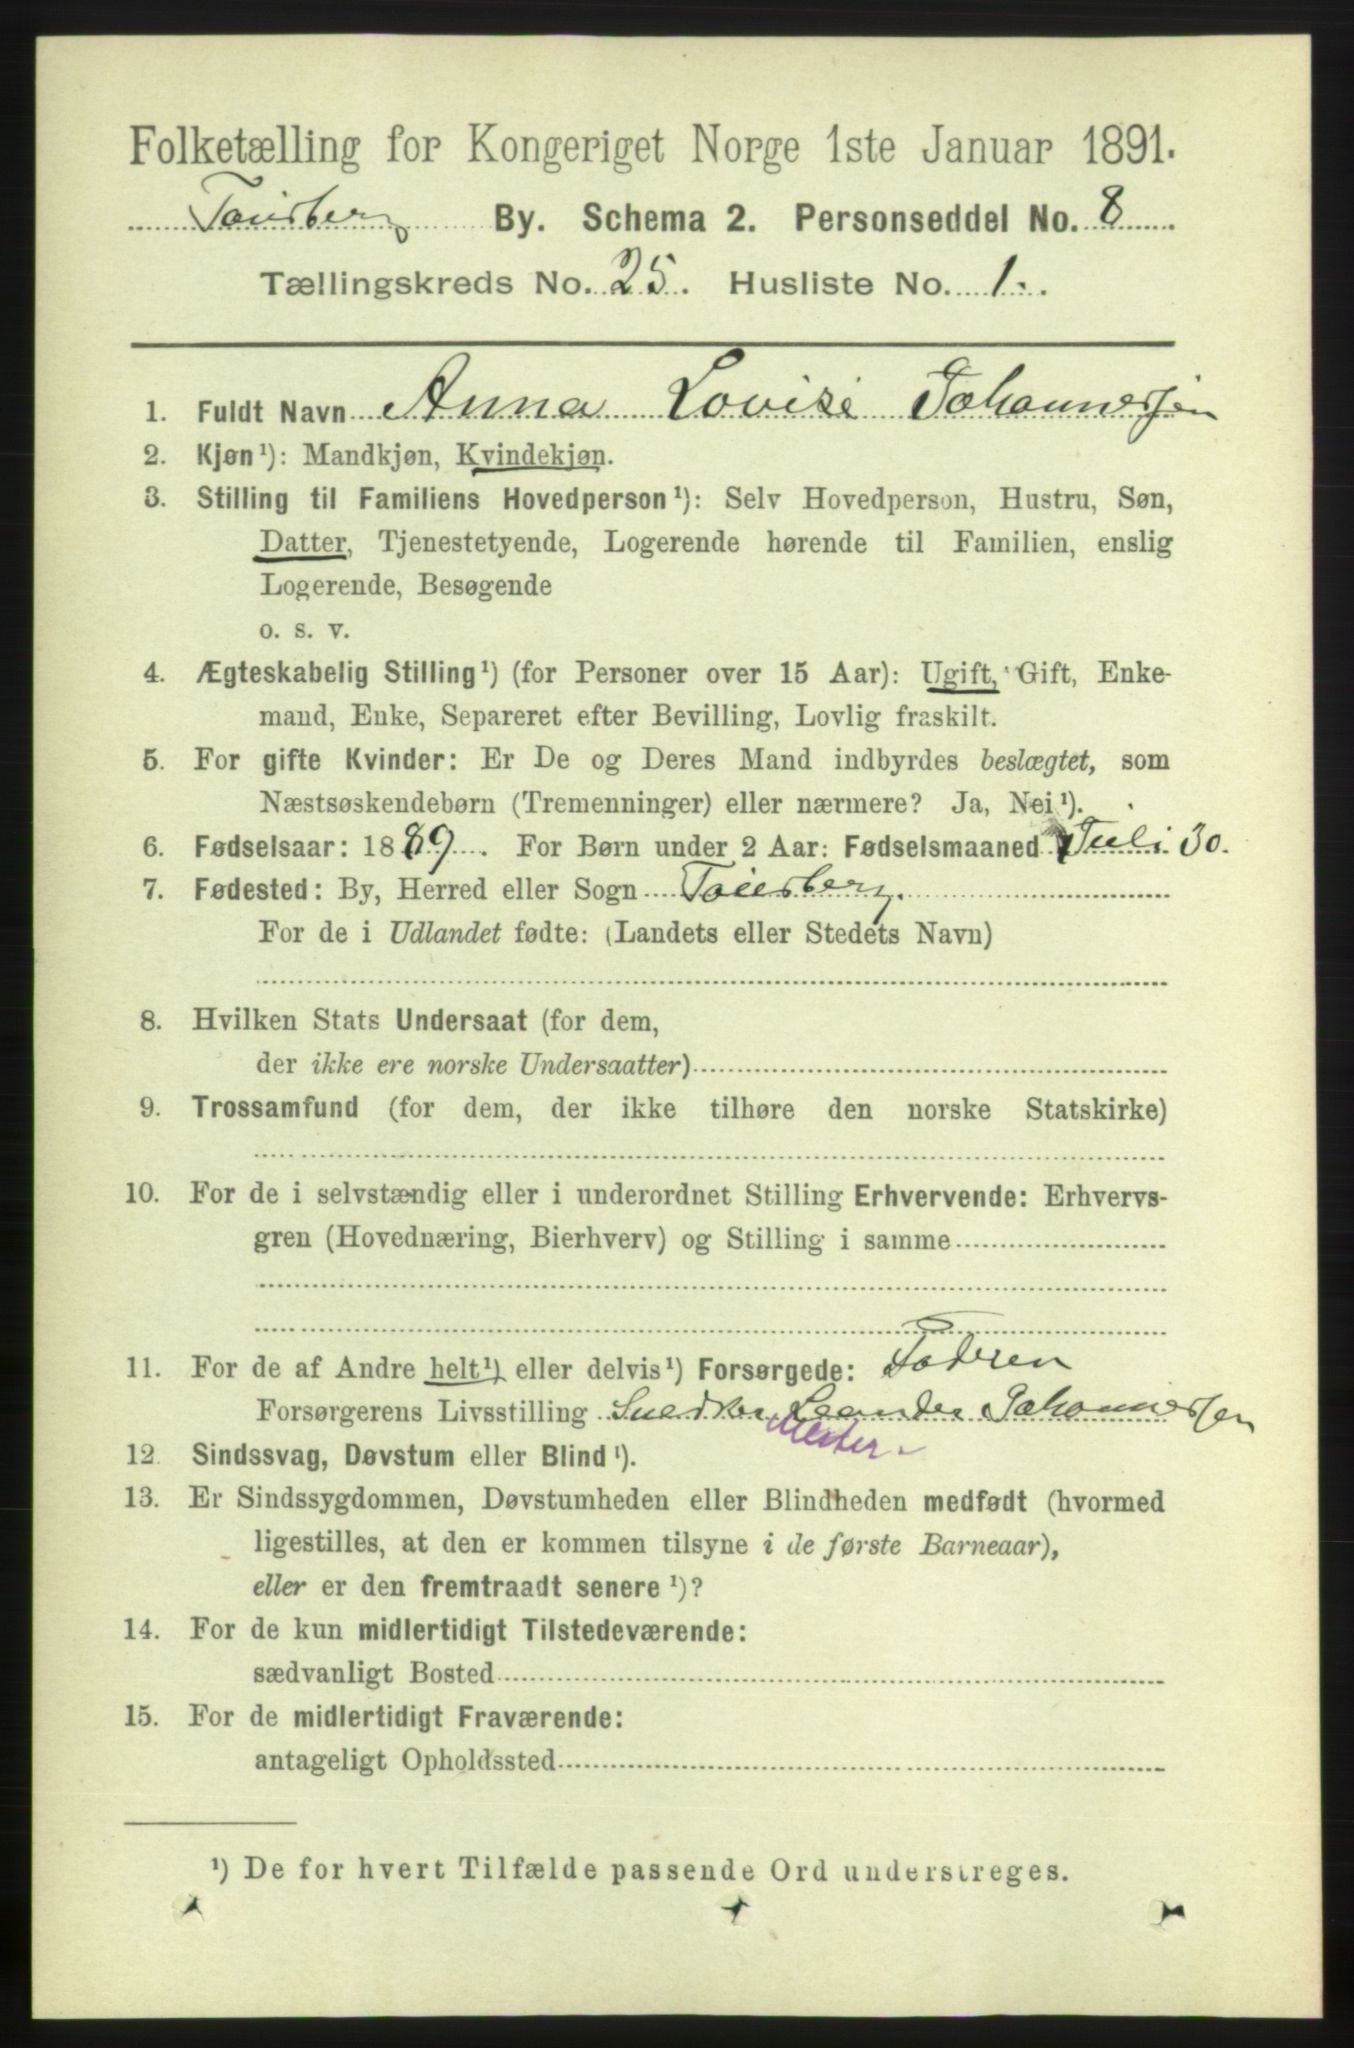 Folketælling for Kongeriget Norge 1ste Januar 1891.
Tønsberg By. Schema 2. Personseddel No. 8
Tællingskreds No. 25. Husliste No. 1.
1. Fuldt Navn Anna Lovise Johannessen
2. Kjøn¹): Mandkjøn, Kvindekjøn.
3. Stilling til Familiens Hovedperson¹): Selv Hovedperson, Hustru, Søn,
Datter, Tjenestetyende, Logerende hørende til Familien, enslig
Logerende, Besøgende
o. s. v.
4. Ægteskabelig Stilling¹) (for Personer over 15 Aar): Ugift, Gift, Enke-
mand, Enke, Separeret efter Bevilling, Lovlig fraskilt.
5. For gifte Kvinder: Er De og Deres Mand indbyrdes beslægtet, som
Næstsøskendebørn (Tremenninger) eller nærmere? Ja, Nei¹).
6. Fødselsaar: 1889. For Børn under 2 Aar: Fødselsmaaned Juli 30.
7. Fødested: By, Herred eller Sogn Tønsberg.
For de i Udlandet fødte: (Landets eller Stedets Navn)
8. Hvilken Stats Undersaat (for dem,
der ikke ere norske Undersaatter)
9. Trossamfund (for dem, der ikke tilhøre den norske Statskirke)
10. For de i selvstændig eller i underordnet Stilling Erhvervende: Erhvervs-
gren (Hovednæring, Bierhverv) og Stilling i samme
11. For de af Andre helt¹) eller delvis¹) Forsørgede: Faderen
Forsørgerens Livsstilling Snedker Leander Johannessen
Mester
12. Sindssvag, Døvstum eller Blind¹).
13. Er Sindssygdommen, Døvstumheden eller Blindheden medfødt (hvormed
ligestilles, at den er kommen tilsyne i de første Barneaar),
eller er den fremtraadt senere¹)?
14. For de kun midlertidigt Tilstedeværende:
sædvanligt Bosted
15. For de midlertidigt Fraværende:
antageligt Opholdssted
¹) De for hvert Tilfælde passende Ord understreges.